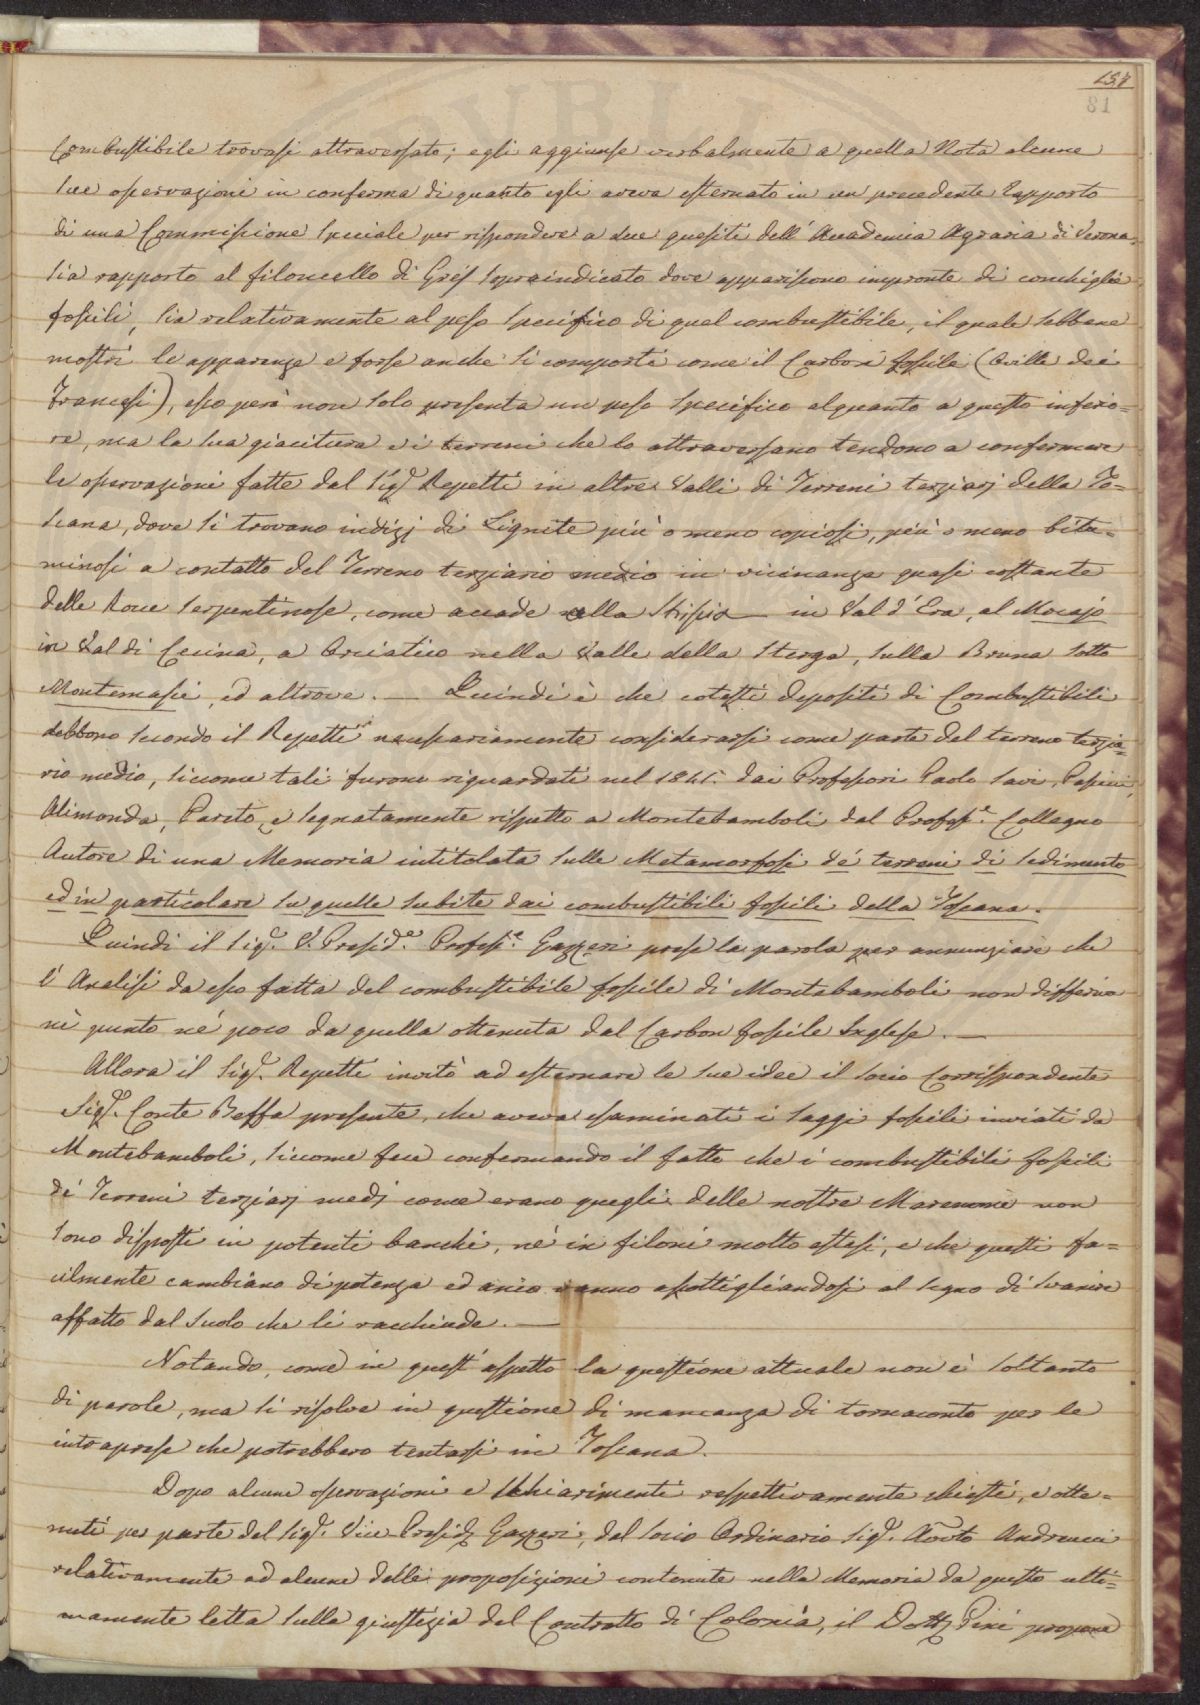 157
81
Combustibile trovasi attraversato; egli aggiunse verbalmente a quella Nota alcune
sue osservazioni in conferma di quanto egli aveva esternato in un precedente Rapporto
di una Commissione Speciale per rispondere a due quesiti dell' Accademia Agraria di Verona,
sia rapporto al filoncello di Grés sopraindicato dove appariscono impronte di conchiglie
fossili, sia relativamente al peso specifico di quel combustibile, il quale sebbene
mostri le apparenze e forse anche si comporti come il Carbon fossile (Ouille dei
Francesi), esso però non solo presenta un peso specifico alquanto a questo inferio=
re, ma la sua giacitura e i terreni che lo attraversano tendono a confermare
le osservazioni fatte dal Sigr. Repetti in altre Valli di Terreni terziarj della To=
scana, dove si trovano indizj di Lignite più o meno copiosi, più o meno bitu=
minosi a contatto del Terreno terziario medio in vicinanza quasi costante
delle Rocce serpentinose, come accade nella Strisia in Val d'Era, al Mocajo
in Val di Cecina, a Orciatico nella Valle della Sterza, sulla Bruna sotto
Montemassi, ed altrove. — Quindi è che cotesti depositi di Combustibili
debbono secondo il Repetti necessariamente considerarsi come parte del terreno terzia=
rio medio, siccome tali furono riguardati nel 1841. dai Professori Paolo Savi, Pasini,
Alimonda, Pareto, e segnatamente rispetto a Montebamboli dal Profess.e Collegno
Autore di una Memoria intitolata sulle Metamorfosi de' terreni di sedimento
ed in particolare su quelle subite dai combustibili fossili della Toscana.
Quindi il Sigr. V. Presid.e Profess.e Gazzeri prese la parola per annunziare che
l'Analisi da esso fatta del combustibile fossile di Montebamboli non differiva
nè punto nè poco da quella ottenuta dal Carbon fossile Inglese. —
Allora il Sigr. Repetti invitò ad esternare le sue idee il Socio Corrispondente
Sigr. Conte Beffa presente, che aveva esaminati i saggi fossili inviati da
Montebamboli, siccome fece confermando il fatto che i combustibili fossili
de' Terreni terziarj medj come erano quegli delle nostre Maremme non
sono disposti in potenti banchi, nè in filoni molto estesi, e che questi fa=
cilmente cambiano di potenza ed anco vanno assottigliandosi al segno di svanire
affatto dal suolo che li racchiude. —
Notando, come in quest' aspetto la questione attuale non è soltanto
di parole, ma si risolve in questione di mancanza di tornaconto per le
intraprese che potrebbero tentarsi in Toscana.
Dopo alcune osservazioni e schiarimenti respettivamente chiesti, e otte=
nuti per parte del Sigr. Vice Presid. Gazzeri, del Socio Ordinario Sigr. Avvto Andreucci
relativamente ad alcune delle proposizioni contenute nella Memoria da questo ulti=
mamente letta sulla giustizia del Contratto di Colonìa, il Dott. Pini propone